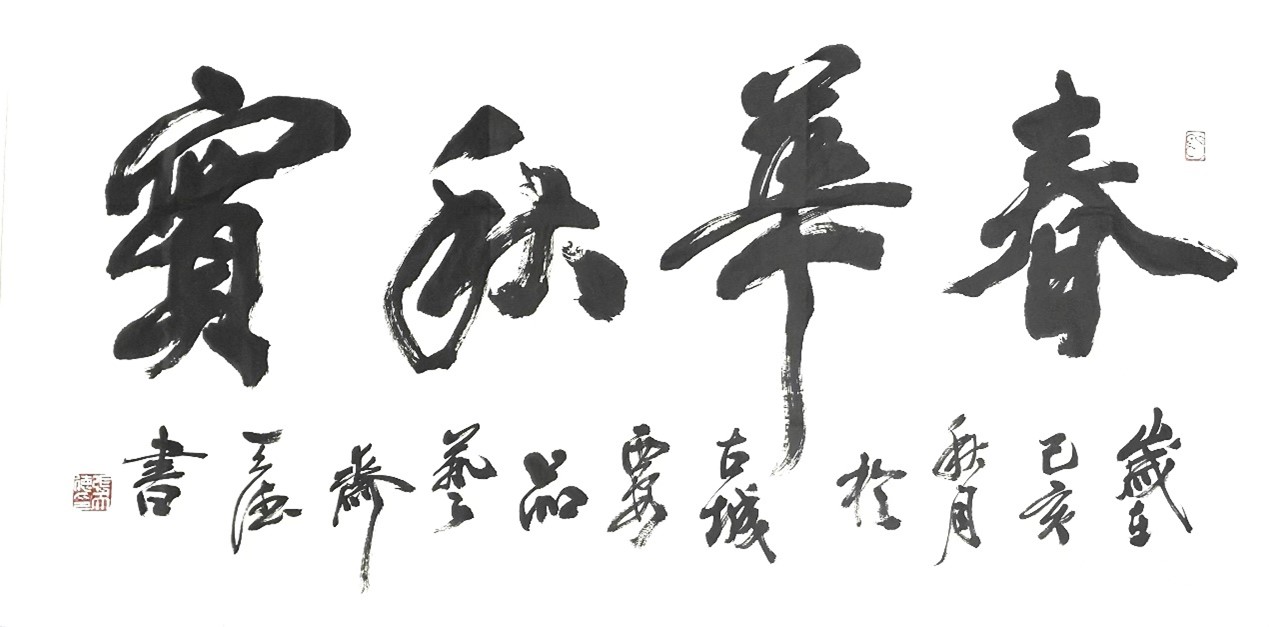 春華秋實
歲在己亥秋月於古城西安品藝齋三德書